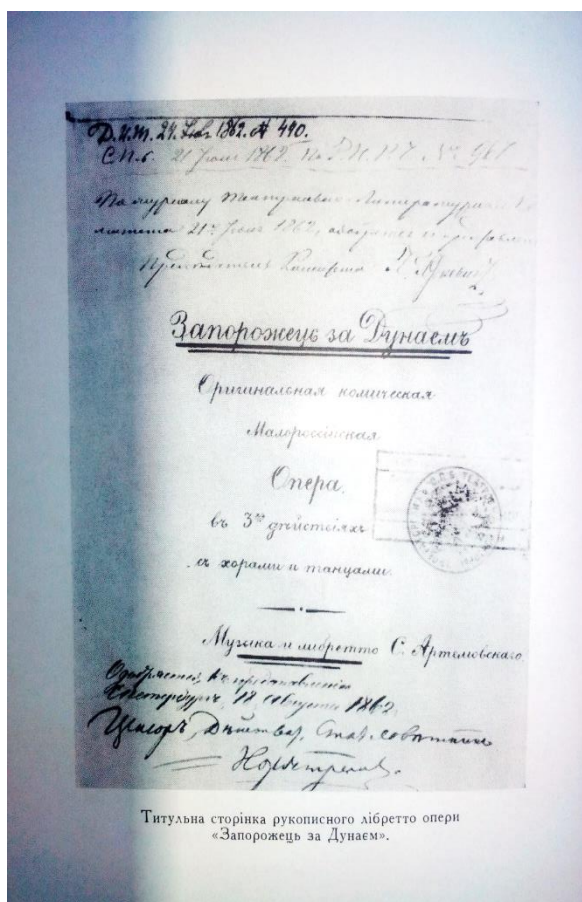 Д.И.Т. 24 1862. № 490.
С.П.б. 21 1862. №
По журналу Театрально Литературнаго
митета 21 1862, одобряется
Председатель Комитета
Запорожець за Дунаемъ
Оригинальная комическая
Малороссійская
Опера.
въ 3хъ дѣйствіяхъ
съ хорами и танцами.
Музыка и либретто С. Артемовскаго
Одобряется къ представленію
С.Петербургъ, 18 августа 1862.
Цензоръ, Дѣйствит. Стат. совѣтникъ
Титульна сторінка рукописного лібретто опери
«Запорожець за Дунаєм».